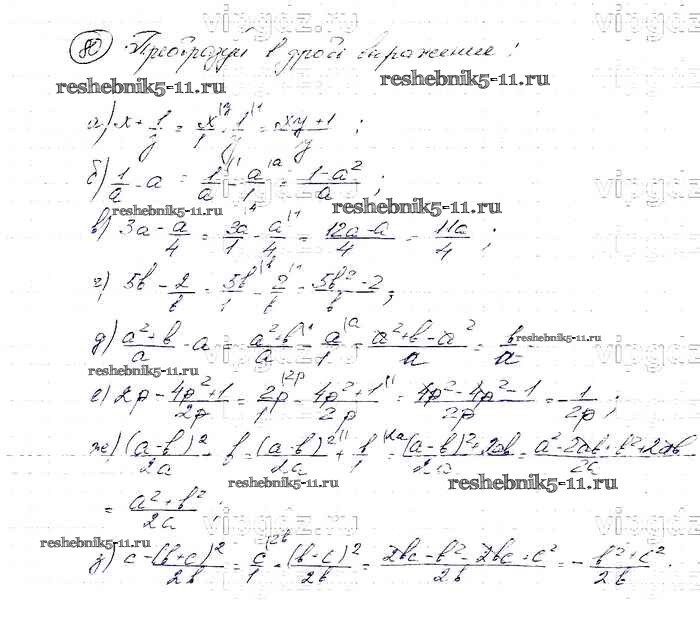 vipgdz.com
80 Преобразуй в дробь выражение:
reshebnik5-11.ru reshebnik5-11.ru
а) x + 1/y = x/1 |y + 1/y |1 = (xy+1)/y ;
б) 1/a - a = 1/a |1 - a/1 |a = (1-a²)/a ;
reshebnik5-11.ru reshebnik5-11.ru
в) 3a - a/4 = 3a/1 |4 - a/4 |1 = (12a-a)/4 = 11a/4 ;
г) 5b - 2/b = 5b/1 |b - 2/b |1 = (5b²-2)/b ;
д) (a²+b)/a - a = (a²+b)/a |1 - a/1 |a = (a²+b-a²)/a = b/a
reshebnik5-11.ru
reshebnik5-11.ru
е) 2p - (4p²+1)/2p = 2p/1 |2p - (4p²+1)/2p |1 = (4p²-4p²-1)/2p = -1/2p ;
ж) (a-b)²/2a + b = (a-b)²/2a |1 + b/1 |2a = ((a-b)²+2ab)/2a = (a²-2ab+b²+2ab)/2a =
reshebnik5-11.ru reshebnik5-11.ru
= (a²+b²)/2a ;
reshebnik5-11.ru
з) c - (b+c)²/2b = c/1 |2b - (b+c)²/2b = (2bc-b²-2bc-c²)/2b = -(b²+c²)/2b .